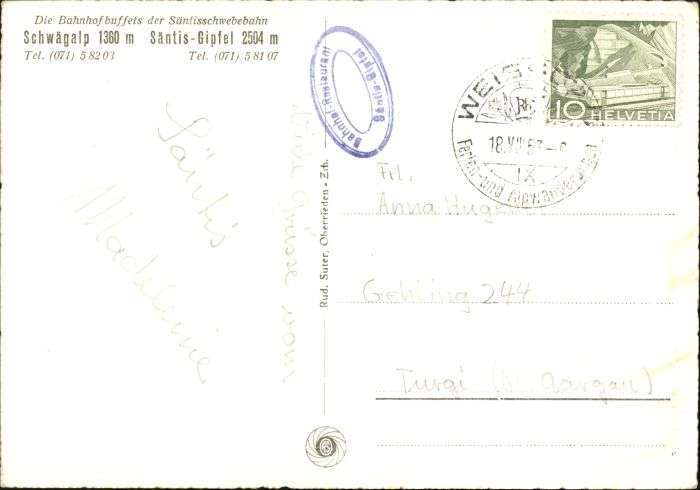 Die Bahnhofbuffets der Säntisschwebebahn
Schwägalp 1360 m Säntis-Gipfel 2504 m
Tel. (071) 5 82 03 Tel. (071) 5 81 07
Bahnhof-Restaurant
Säntis-Gipfel
WEISS
18.VII
IX
Ferien- und
10 HELVETIA
Viele Grüsse vom
Säntis
Madeleine
Rud. Suter, Oberrieden - Zch.
Frl.
Anna
Gehling 244
Turgi (Kt. Aargau)